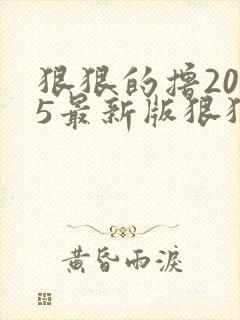 狠狠的撸20
5最新版狠狠
黄昏雨淚